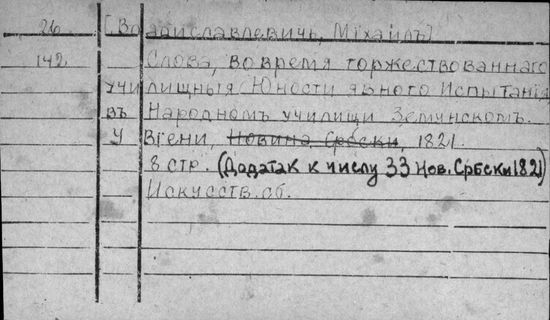 26 [Владиславлевичь, Міхаилъ]
142. Слова, во время торжествованнаго
училищныя Юности явного Испытанія
въ Народномъ училищи Земунскомъ.
У Віени, Новина Србски, 1821.
8 стр. (Додатак к числу 33 Нов. Србски 1821)
Искусств. сб.